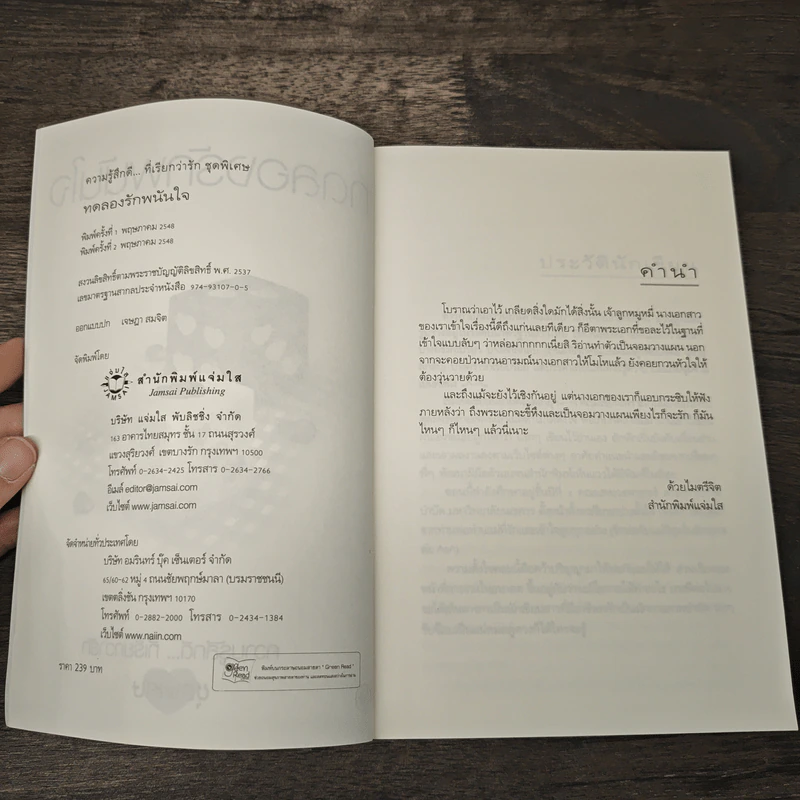 ความรู้สึกดี... ที่เรียกว่ารัก ชุดพิเศษ
ทดลองรักพนันใจ
พิมพ์ครั้งที่ 1 พฤษภาคม 2548
พิมพ์ครั้งที่ 2 พฤษภาคม 2548
สงวนลิขสิทธิ์ตามพระราชบัญญัติลิขสิทธิ์ พ.ศ. 2537
เลขมาตรฐานสากลประจำหนังสือ 974-93107-0-5
ออกแบบปก เจษฎา สมจิต
จัดพิมพ์โดย
สำนักพิมพ์แจ่มใส
Jamsai Publishing
บริษัท แจ่มใส พับลิชชิ่ง จำกัด
163 อาคารไทยสมุทร ชั้น 17 ถนนสุรวงศ์
แขวงสุริยวงศ์ เขตบางรัก กรุงเทพฯ 10500
โทรศัพท์ 0-2634-2425 โทรสาร 0-2634-2766
อีเมล์ editor@jamsai.com
เว็บไซต์ www.jamsai.com
จัดจำหน่ายทั่วประเทศโดย
บริษัท อมรินทร์ บุ๊ค เซ็นเตอร์ จำกัด
65/60-62 หมู่ 4 ถนนชัยพฤกษ์มาลา (บรมราชชนนี)
เขตตลิ่งชัน กรุงเทพฯ 10170
โทรศัพท์ 0-2882-2000 โทรสาร 0-2434-1384
เว็บไซต์ www.naiin.com
ราคา 239 บาท
Green Read
พิมพ์บนกระดาษถนอมสายตา "Green Read"
คำนำ
โบราณว่าเอาไว้ เกลียดสิ่งใดมักได้สิ่งนั้น เจ้าลูกหมูหมี่ นางเอกสาว
ของเราเข้าใจเรื่องนี้ดีถึงแก่นเลยทีเดียว ก็อีตาพระเอกที่ขอละไว้ในฐานที่
เข้าใจแบบลับๆ ว่าหล่อมากกกกเนี่ยสิ ริอ่านทำตัวเป็นจอมวางแผน นอก
จากจะคอยป่วนกวนอารมณ์นางเอกสาวให้โมโหแล้ว ยังคอยกวนหัวใจให้
ต้องวุ่นวายด้วย
และถึงแม้จะยังไว้เชิงกันอยู่ แต่นางเอกของเราก็แอบกระซิบให้ฟัง
ภายหลังว่า ถึงพระเอกจะขี้หึงและเป็นจอมวางแผนเพียงไรก็จะรัก ก็มัน
ไหนๆ ก็ไหนๆ แล้วนี่เนาะ
ด้วยไมตรีจิต
สำนักพิมพ์แจ่มใส